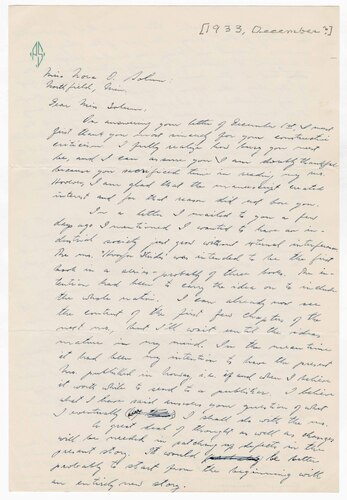 [1933, December ?]
Miss Nora O. Solum.
Northfield, Minn.
Dear Miss Solum.
In answering your letter of December 1st, I must
first thank you most sincerely for your constructive
criticism. I fully realize how busy you must
be, and I can assure you I am doubly thankful
because you sacrificed time in reading my ms.
However, I am glad that the manuscript created
interest and for that reason did not bore you.
In a letter I mailed to you a few
days ago I mentioned I wanted to have an in-
dustrial society just good without internal interference
The ms. was intended to be the first
book in a series - probably of three books. The in-
tention had been to carry the idea on to include
the whole nation. I can already now see
the content of the first few chapters of the
next ms, but I'll wait until the ideas
mature in my mind. In the meantime
it had been my intention to have the present
ms. published in Norway i.e. if and when I believe
it worth while to send to a publisher. I believe
what I have said answers your question of what
I eventually I shall do with the ms.
A great deal of thought as well as changes
will be needed in patching up defects in the
present story. It would be better
probably to start from the beginning with
an entirely new story.